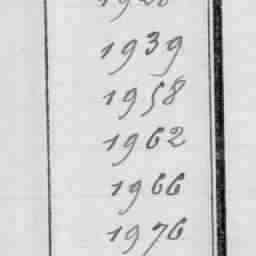 1939
1958
1962
1966
1976